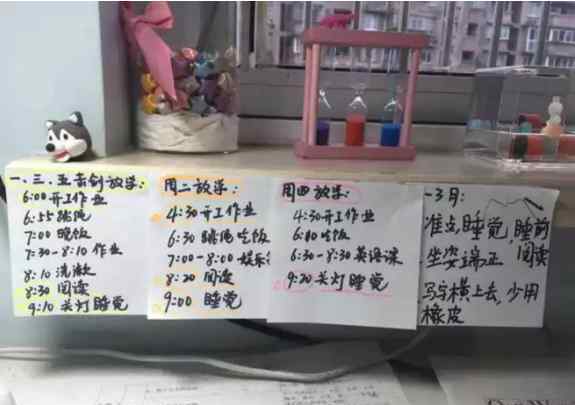 一、三、五击剑放学:
6:00开工作业
6:55跳绳
7:00晚饭
7:30-8:10作业
8:10洗漱
8:30阅读
9:10关灯睡觉
周二放学:
4:30开工作业
6:30跳绳吃饭
7:00-8:00娱乐
8:20阅读
9:00睡觉
周四放学:
4:30开工作业
6:10吃饭
6:30-8:30英语课
9:20关灯睡觉
一3月:
准点睡觉,睡前
阅读
坐姿端正
写字横上去,少用
橡皮